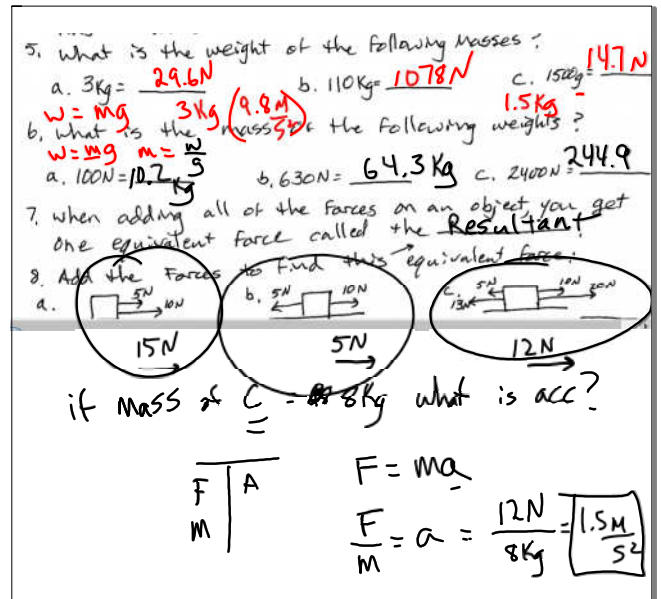 5. What is the weight of the following Masses?
a. 3Kg = 29.6N b. 110Kg= 1078N c. 1500g = 14.7N
W = mg 3Kg (9.8 M/S²) 1.5Kg
6. what is the mass of the following weights?
W = mg m = W/g
a. 100N = 10.2 Kg b. 630N = 64.3 Kg c. 2400N = 244.9
7. when adding all of the forces on an object, you get
one equivalent force called the Resultant
8. Add the Forces to find this equivalent force:
a. 5N 10N b. 5N 10N c. 5N 13N 10N 20N
15N 5N 12N
if mass of C = 8Kg what is acc?
F A F = ma
M F/M = a = 12N/8Kg = 1.5 M/S²